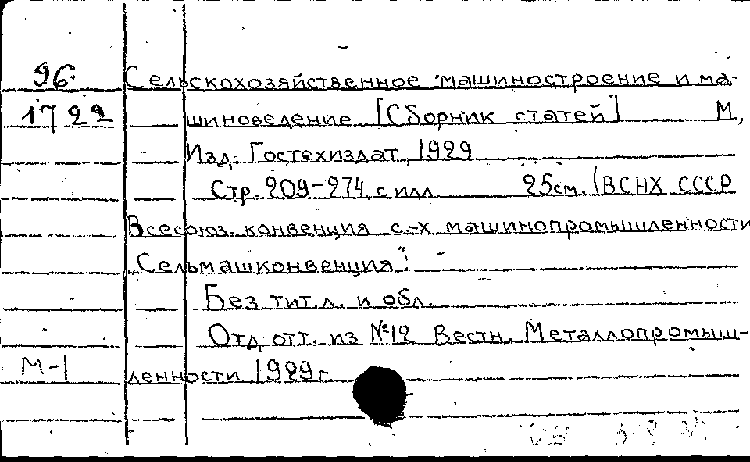 96 Сельскохозяйственное машиностроение и ма-
1722 шиноведение [Сборник статей] М,
Изд. Гостехиздат, 1929
Стр. 209-274 с илл 25см. (ВСНХ СССР
Всесоюз. конвенция с.-х машинопромышленности
"Сельмашконвенция".
Без тит.л. и обл.
Отд. отт. из №12 Вестн. Металлопромыш-
М-1 ленности 1929г